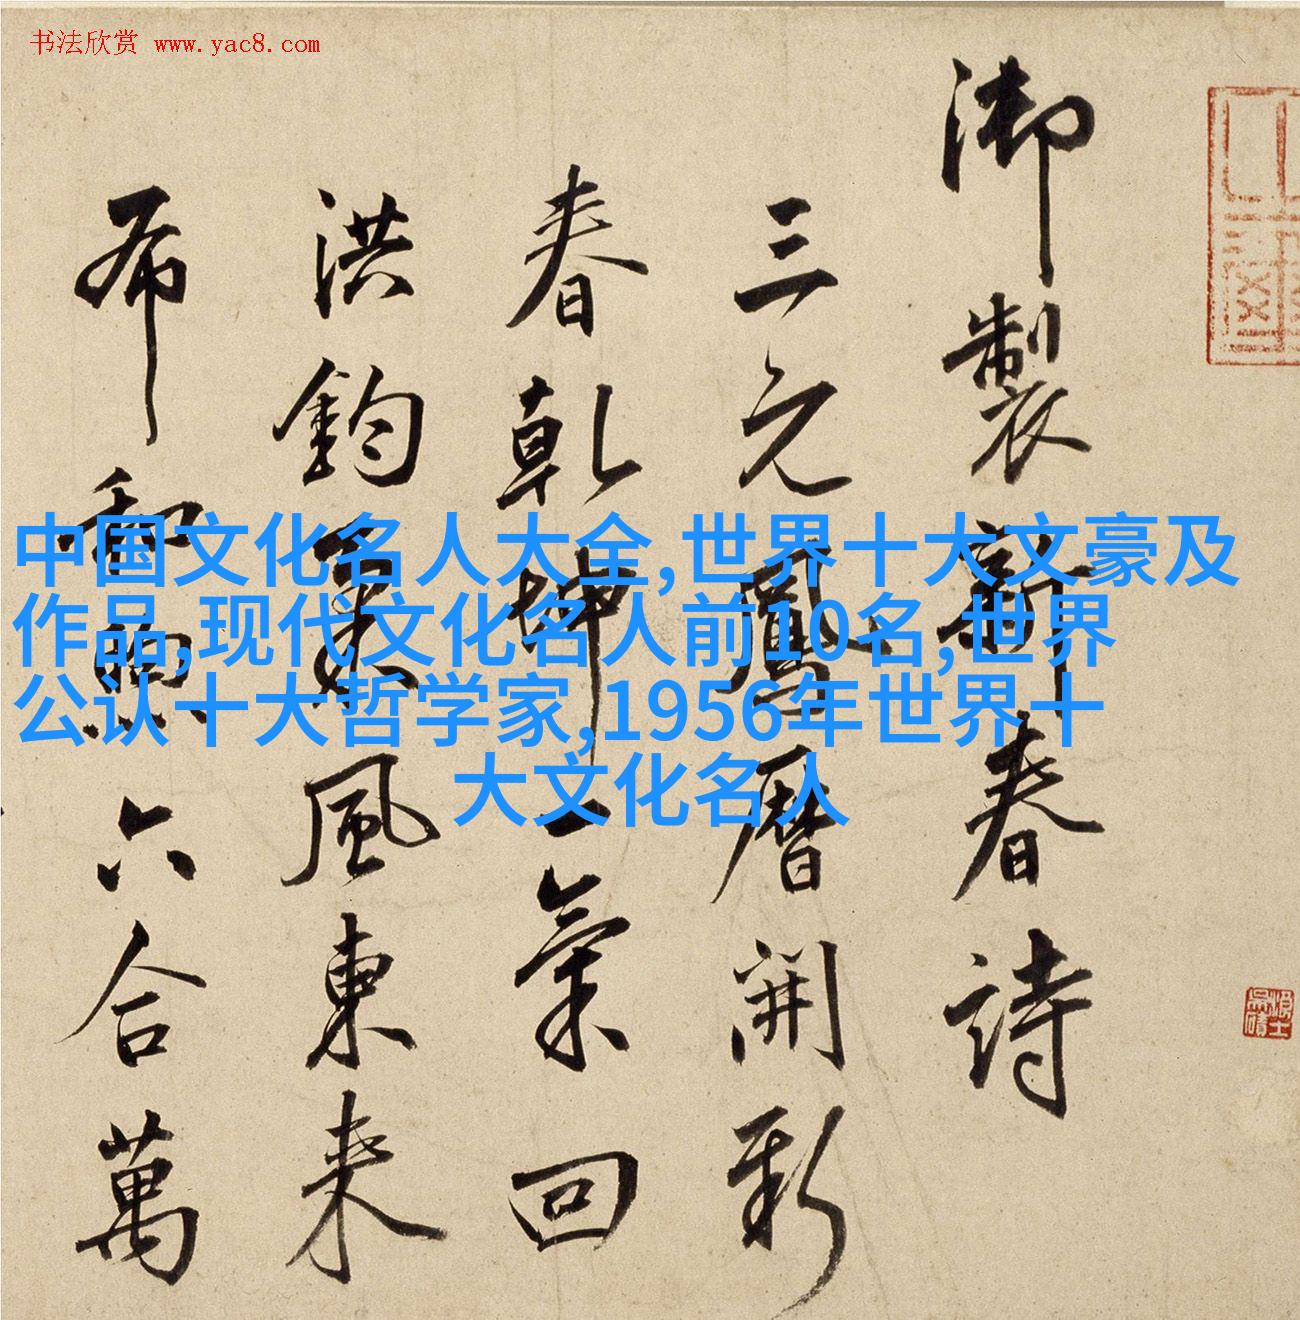 书法欣赏 www.yac8.com
御製新春詩
三元鳳暦開新
春乾坤一氣回
洪鈞風東来
布和六合萬
中国文化名人大全,世界十大文豪及
作品,现代文化名人前10名,世界
公认十大哲学家,1956年世界十
大文化名人